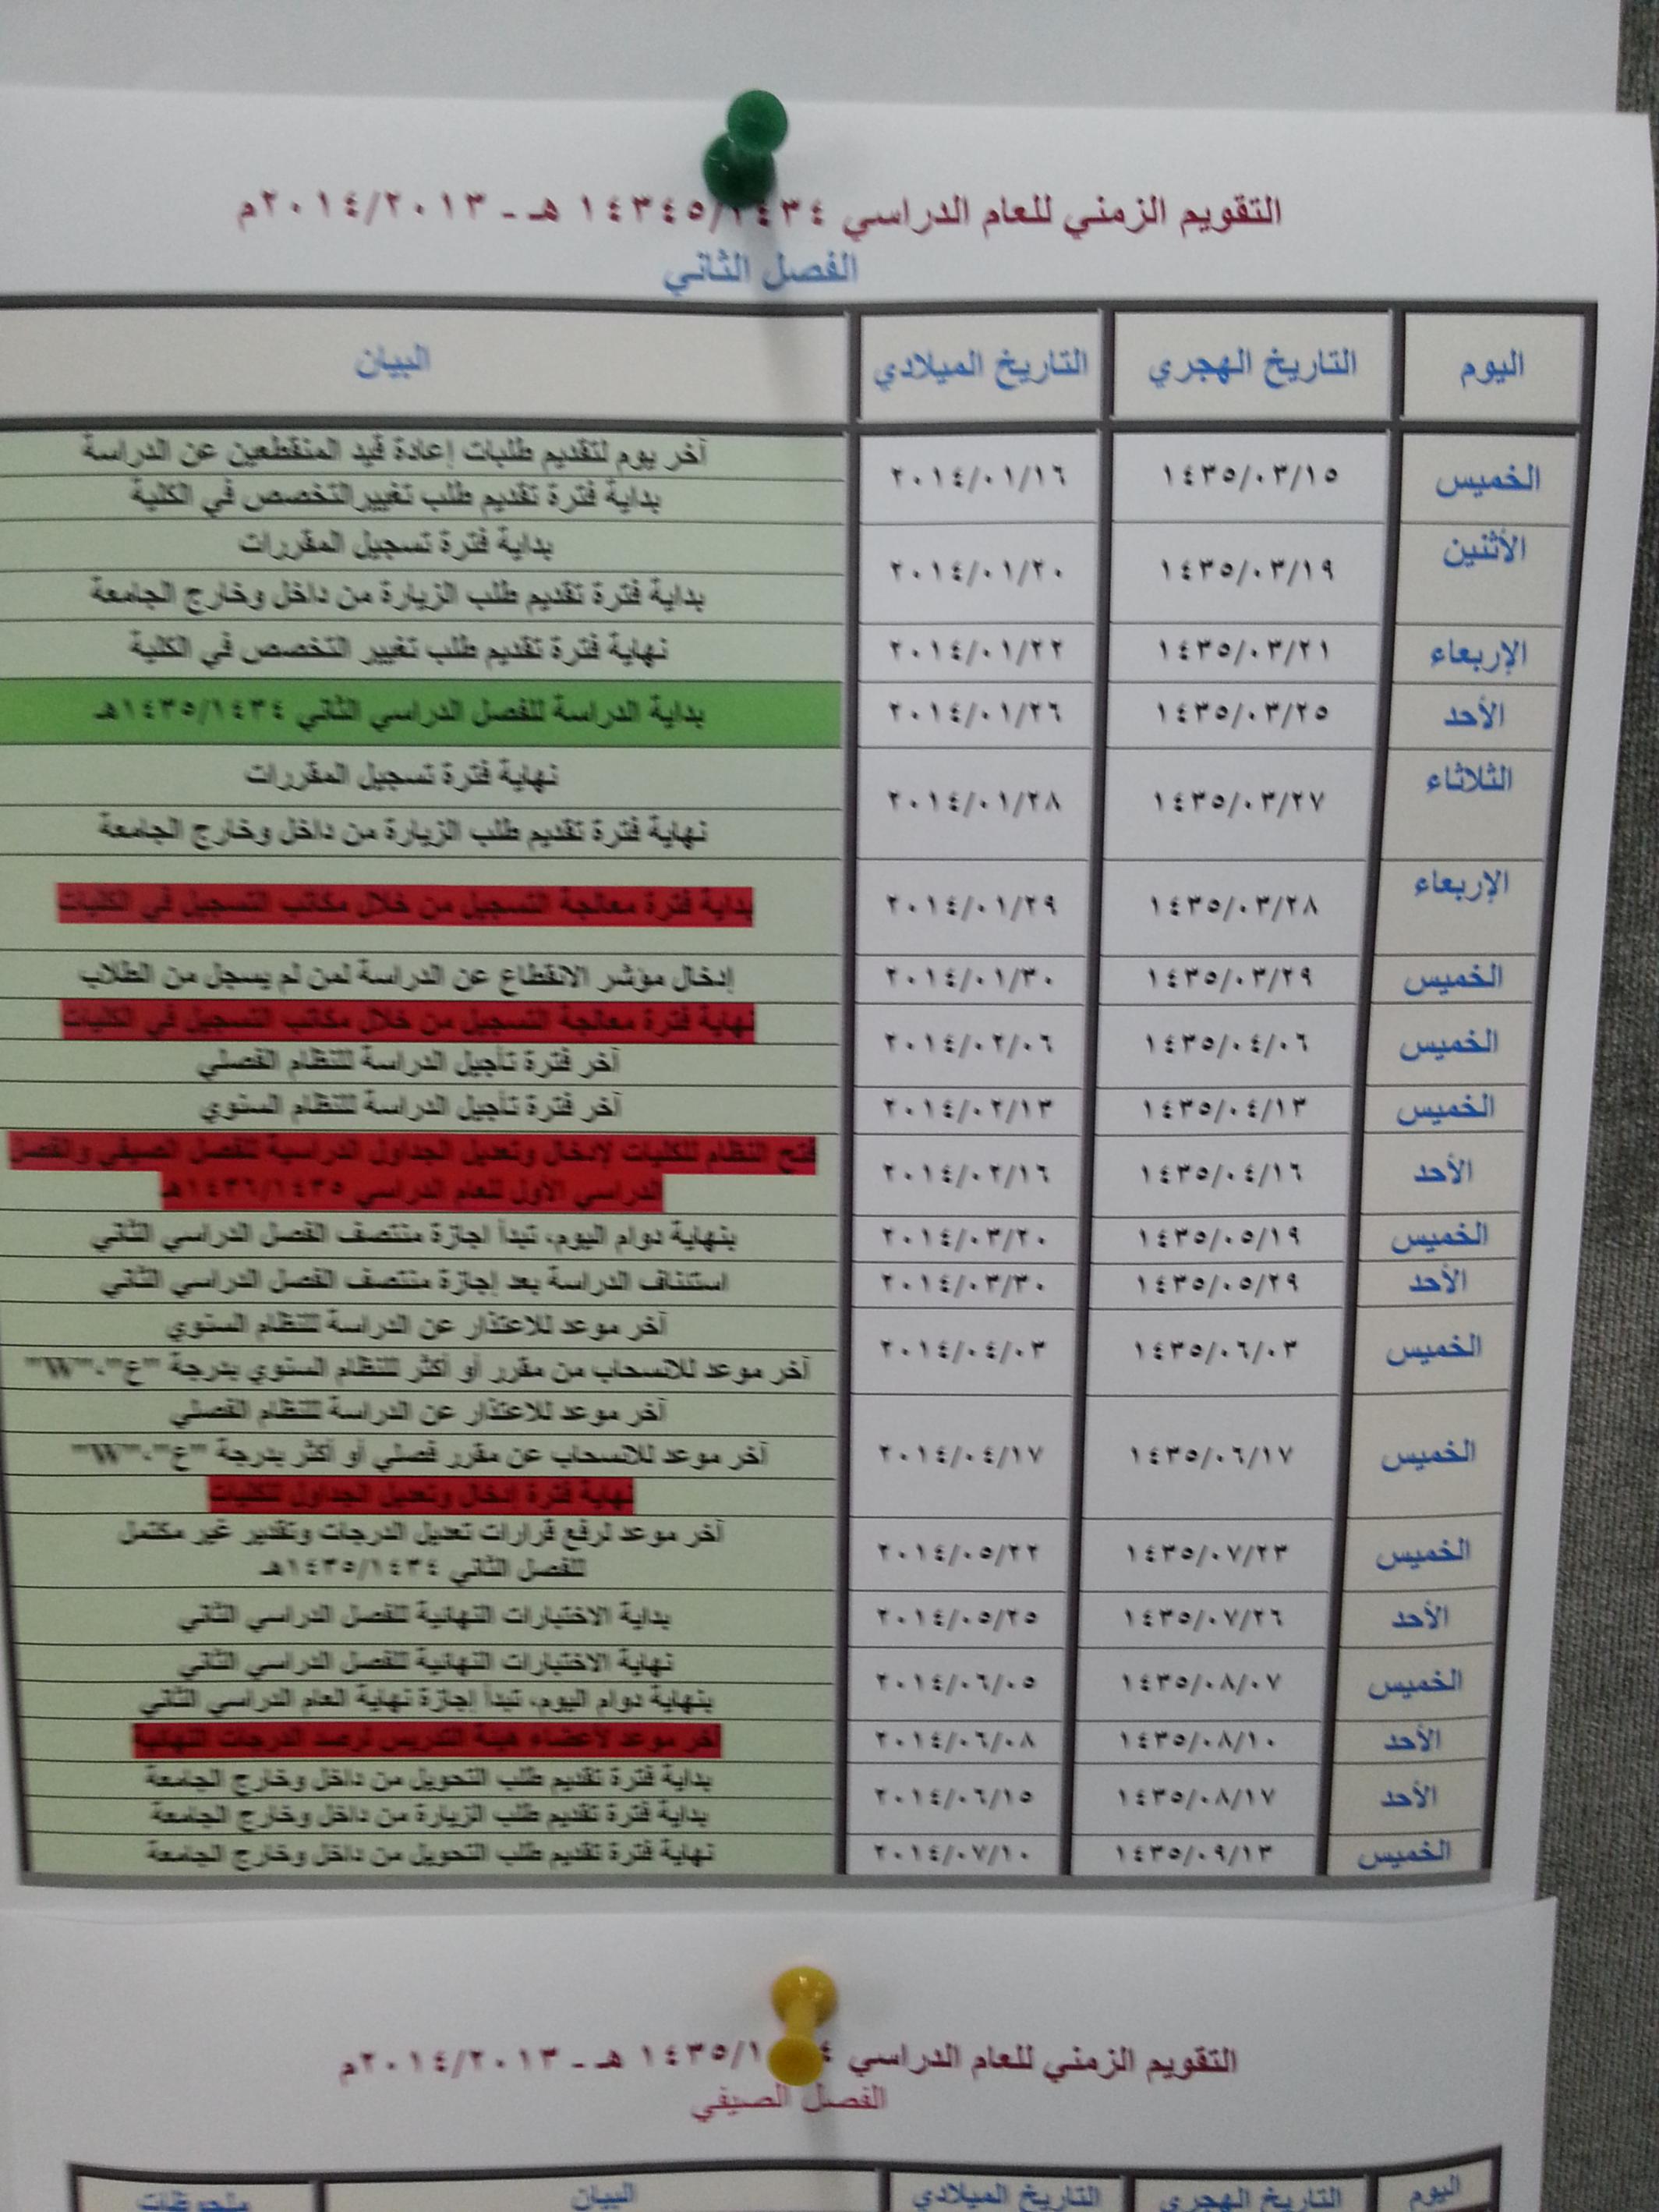 التقويم الزمني للعام الدراسي ١٤٣٤/١٤٣٤٥ هـ - ٢٠١٤/٢٠١٣م
الفصل الثاني
اليوم التاريخ الهجري التاريخ الميلادي البيان
الخميس ١٤٣٥/٠٣/١٥ ٢٠١٤/٠١/١٦ آخر يوم لتقديم طلبات إعادة قيد المنقطعين عن الدراسة
بداية فترة تقديم طلب تغييرالتخصص في الكلية
الأثنين ١٤٣٥/٠٣/١٩ ٢٠١٤/٠١/٢٠ بداية فترة تسجيل المقررات
بداية فترة تقديم طلب الزيارة من داخل وخارج الجامعة
الإربعاء ١٤٣٥/٠٣/٢١ ٢٠١٤/٠١/٢٢ نهاية فترة تقديم طلب تغيير التخصص في الكلية
الأحد ١٤٣٥/٠٣/٢٥ ٢٠١٤/٠١/٢٦ بداية الدراسة للفصل الدراسي الثاني ١٤٣٥/١٤٣٤هـ
الثلاثاء ١٤٣٥/٠٣/٢٧ ٢٠١٤/٠١/٢٨ نهاية فترة تسجيل المقررات
نهاية فترة تقديم طلب الزيارة من داخل وخارج الجامعة
الإربعاء ١٤٣٥/٠٣/٢٨ ٢٠١٤/٠١/٢٩ بداية فترة معالجة التسجيل من خلال مكاتب التسجيل في الكليات
الخميس ١٤٣٥/٠٣/٢٩ ٢٠١٤/٠١/٣٠ إدخال مؤشر الانقطاع عن الدراسة لمن لم يسجل من الطلاب
الخميس ١٤٣٥/٠٤/٠٦ ٢٠١٤/٠٢/٠٦ نهاية فترة معالجة التسجيل من خلال مكاتب التسجيل في الكليات
آخر فترة تأجيل الدراسة للنظام الفصلي
الخميس ١٤٣٥/٠٤/١٣ ٢٠١٤/٠٢/١٣ آخر فترة تأجيل الدراسة للنظام السنوي
الأحد ١٤٣٥/٠٤/١٦ ٢٠١٤/٠٢/١٦ فتح النظام للكليات لإدخال وتعديل الجداول الدراسية للفصل الصيفي والفصل
الدراسي الأول للعام الدراسي ١٤٣٦/١٤٣٥هـ
الخميس ١٤٣٥/٠٥/١٩ ٢٠١٤/٠٣/٢٠ بنهاية دوام اليوم، تبدأ اجازة منتصف الفصل الدراسي الثاني
الأحد ١٤٣٥/٠٥/٢٩ ٢٠١٤/٠٣/٣٠ استئناف الدراسة بعد إجازة منتصف الفصل الدراسي الثاني
الخميس ١٤٣٥/٠٦/٠٣ ٢٠١٤/٠٤/٠٣ آخر موعد للاعتذار عن الدراسة للنظام السنوي
آخر موعد للانسحاب من مقرر أو أكثر للنظام السنوي بدرجة "ع"،"W"
الخميس ١٤٣٥/٠٦/١٧ ٢٠١٤/٠٤/١٧ آخر موعد للاعتذار عن الدراسة للنظام الفصلي
آخر موعد للانسحاب عن مقرر فصلي أو أكثر بدرجة "ع"،"W"
نهاية فترة إدخال وتعديل الجداول للكليات
الخميس ١٤٣٥/٠٧/٢٣ ٢٠١٤/٠٥/٢٢ آخر موعد لرفع قرارات تعديل الدرجات وتقدير غير مكتمل
للفصل الثاني ١٤٣٥/١٤٣٤هـ
الأحد ١٤٣٥/٠٧/٢٦ ٢٠١٤/٠٥/٢٥ بداية الاختبارات النهائية للفصل الدراسي الثاني
الخميس ١٤٣٥/٠٨/٠٧ ٢٠١٤/٠٦/٠٥ نهاية الاختبارات النهائية للفصل الدراسي الثاني
بنهاية دوام اليوم، تبدأ إجازة نهاية العام الدراسي الثاني
الأحد ١٤٣٥/٠٨/١٠ ٢٠١٤/٠٦/٠٨ آخر موعد لأعضاء هيئة التدريس لرصد الدرجات النهائية
الأحد ١٤٣٥/٠٨/١٧ ٢٠١٤/٠٦/١٥ بداية فترة تقديم طلب التحويل من داخل وخارج الجامعة
بداية فترة تقديم طلب الزيارة من داخل وخارج الجامعة
الخميس ١٤٣٥/٠٩/١٣ ٢٠١٤/٠٧/١٠ نهاية فترة تقديم طلب التحويل من داخل وخارج الجامعة
التقويم الزمني للعام الدراسي هـ - ٢٠١٤/٢٠١٣م
الفصل الصيفي
اليوم التاريخ الهجري التاريخ الميلادي البيان ملحوظات